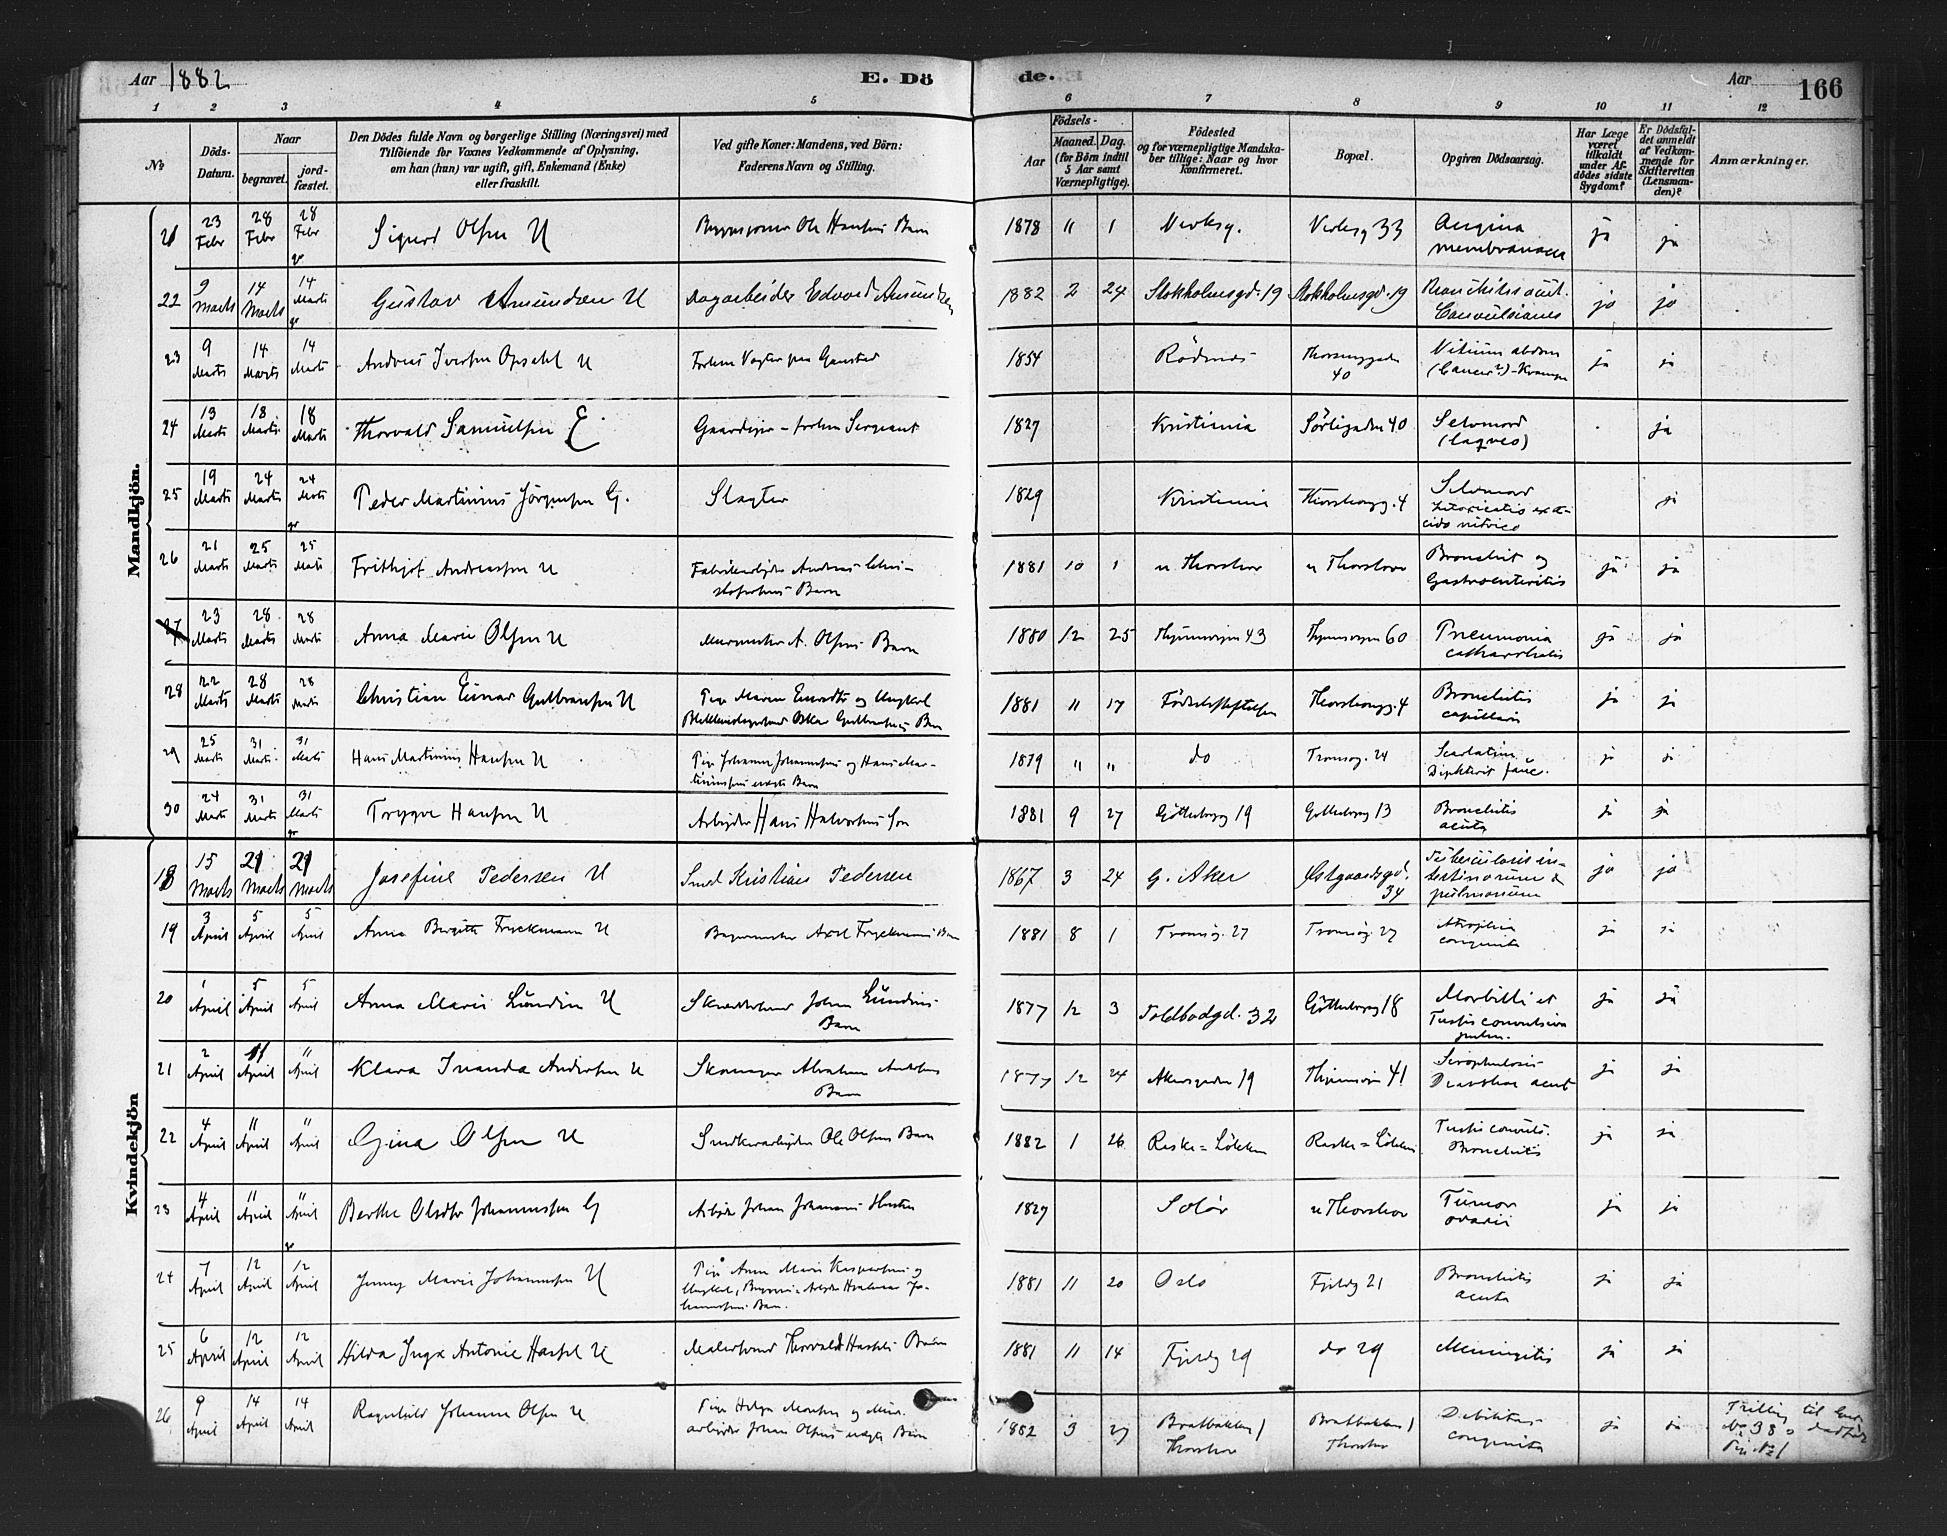 Aar 1882
E. Döde.
Aar
166
1 2 3 4 5 6 7 8 9 10 11 12
№
Döds-Datum.
Naar
begravet.
jordfæstet.
Den Dödes fulde Navn og borgerlige Stilling (Næringsvei) med
Tilföiende for Voxnes Vedkommende af Oplysning,
om han (hun) var ugift, gift, Enkemand (Enke)
eller fraskilt.
Ved gifte Koner: Mandens, ved Börn:
Faderens Navn og Stilling.
Födsels-
Aar
Maaned. Dag.
(for Börn indtil
5 Aar samt
Værnepligtige).
Födested
og for værnepligtige Mandskaber tillige: Naar og hvor
konfirmeret.
Bopæl.
Opgiven Dödsaarsag.
Har Læge været tilkaldt under Afdödes sidste Sygdom?
Er Dödsfaldet anmeldt af Vedkommende for Skifteretten (Lensmanden)?
Anmærkninger.
Mandkjön.
21 23 Febr 28 Febr 28 Febr Sigurd Olsen U Ole Hansens Barn 1878 11 1 33 Angina membranacea ja ja
22 9 Marts 14 Marts 14 Marts Gustav Amundsen U Dagarbeider Edvard Amundsen 1882 2 24 Stokholmsgd. 19 Stokholmsgd. 19 Convulsiones ja ja
23 9 Marts 14 Marts 14 Marts Andreas Iversen Opsahl U 1854 Rödenes 40 Vitium abdom (Cancer?) ja ja
24 13 Marts 18 Marts 18 Marts Thorvald Samuelsen E Gaardeier - forhen Sergeant 1827 Kristiania Sörligaden 40 Selvmord (laqveo) ja
25 19 Marts 24 Marts 24 Marts Peder Martinius Jörgensen G. Slagter 1829 Kristiania Thorshaugg. 4 Selvmord ja
26 21 Marts 25 Marts 25 Marts Frithjof Andreassen U Fabrikarbejder Andreas Christophersens Barn 1881 10 1 n Thorshov n Thorshov Bronchit og Gastroenteritis ja ja
27 23 Marts 28 Marts 28 Marts Anna Marie Olsen U Murmester A. Olsens Barn 1880 12 25 43 60 Pneumonia catharrhalis ja ja
28 22 Marts 28 Marts 28 Marts Christian Einar Gulbransen U Pige Maren og Ungkarl Gulbransens Barn 1881 11 17 Födselsstiftelsen Thorshaugg. 4 Bronchitis capillaris ja ja
29 25 Marts 31 Marts 31 Marts Hans Martinius Hansen U Pige Johanne Johannesens og Hans Martinussens uægte Barn 1879 " " do Tromsög. 24 Scarlatina Diphterit fauc. ja ja
30 24 Marts 31 Marts 31 Marts Trygve Hansen U Arbejder Hans Halvorsens Sön 1881 9 27 Götteborgg 19 Gotteborgg 13 Bronchitis acuta ja ja
Kvindekjön
18 15 Marts 21 Marts 21 Marts Josefine Pedersen U Smed Kristian Pedersen 1867 3 24 G. Aker Østgaardsgd. 34 Tuberculosis intestinorum & pulmonum ja ja
19 3 April 5 April 5 April Anna Birgitte Fryckmann U Bagermester Axel Fryckmanns Barn 1881 8 1 Tromsög. 27 Tromsög. 27 Atrophia congenita ja ja
20 1 April 5 April 5 April Anna Marie Lundin U Johan Lundins Barn 1877 12 3 Toldbodgd. 32 Götteborgg 18 Morbilli et Tussis convulsiva ja ja
21 2 April 11 April " April Klara Ivanda Andersen U Skomager Abraham Andersens Barn 1877 12 24 Akersgaden 19 41 Scrophulosis Diarrhoe acut ja ja
22 4 April 11 April " April Gina Olsen U Snedkerarbejder Ole Olsens Barn 1882 1 26 Raske=Lökken Raske=Lökken Tussis convuls. Bronchitis ja ja
23 4 April 11 April " April Berthe Olsdtr Johannessen G Arbejder Johan Johansens Hustru 1829 Solör n Thorshov Tumor ovarii ja ja
24 7 April 12 April 12 April Jenny Marie Johannessen U Pige Anne Marie Kaspersens og Ungkarl, Johannesens Barn. 1881 11 20 Oslo Fjeldg 21 Bronchitis acuta ja ja
25 6 April 12 April 12 April Hilda Inga Antonie Hassel U Malersvend Thorvald Hassels Barn 1881 11 14 Fjeldg 29 do 29 Meningitis ja ja
26 9 April 14 April 14 April Ragnhild Johanne Olsen U Pige Helga og Murarbeider Johan Olsens uægte Barn 1882 3 27 Bratbakken Thorshov Bratbakken Thorshov Debilitas congenita ja ja Trilling til № 38